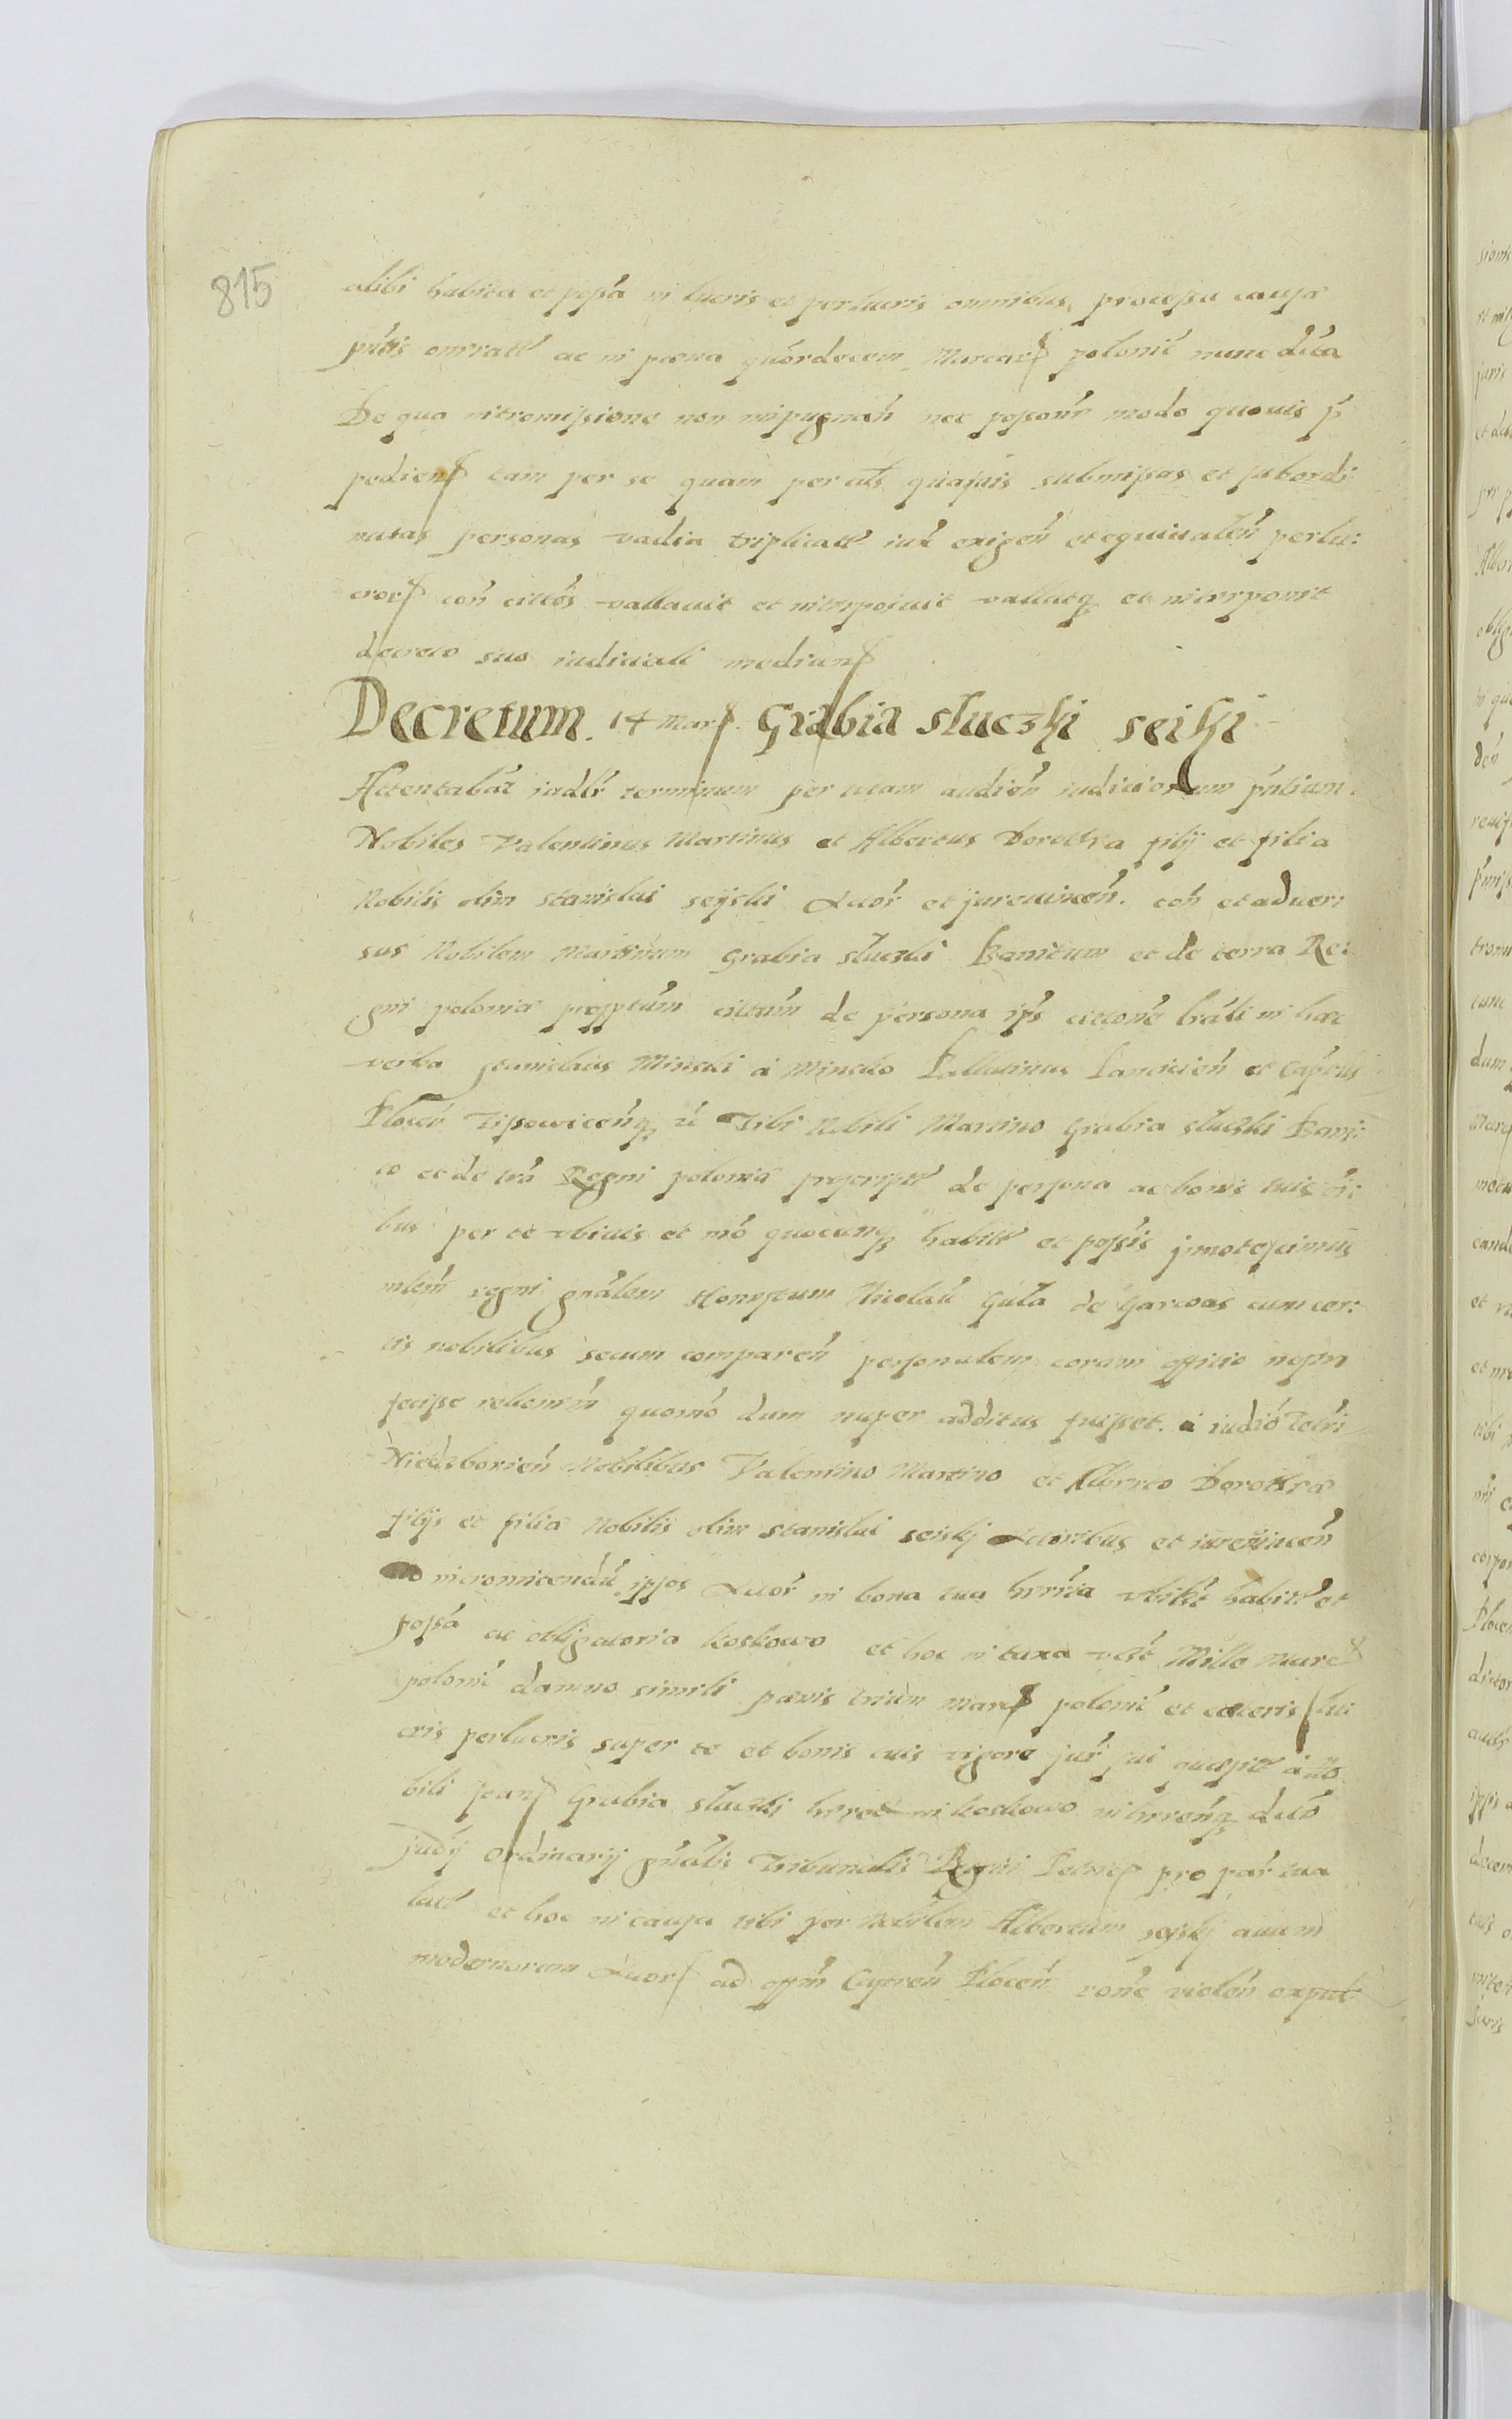 815
alibi habita et possa in lucris et perlucris omnibus, processu causæ
pntis omnatt ac in pœna quordecem Marcar polonic nunc dica
De qua intromissione non inpugnan nec possone modo quouis p
pedien tam per se quam per als quasuis submissas et subordi
natas personas vadia triplicatt iux exigen et equiualen perlu:
cror con cittos vallauit et interposuit vallatq et interponit
decreto suo iudiciali median
Decretum. 14 Mar. Grabia słuczki seiki
Attentabat iudlr terminum per viam audien iudiciorum pntium.
Nobiles Valentinus Martinus et Albertus Dorothea filij et filia
Nobilis olim Stanislai seyski Actor et jureuincen. con et aduer:
sus Nobilem Martinum Grabia słuczki Banitum et de terra Re:
gni poloniæ prosptum cittum de persona ips cittone lrali in hæc
verba Stanislaus Minski a Minsko Pallatinus Lancicien et Capeus
Plocen Tissowiecenq z Tibi Nobili Martino Grabia słuczki Bani:
to et de tra Regni poloniæ proscriptt de persona ac bonis tuis oi:
bus per te vbiuis et mo quocunq habitt et possis jnnotescimus
mlem regni gnalem Honestum Nicolau Guła de Garwas cum cer:
tis nobilibus secum comparen personalem coram officio nostro
fecisse rellonem quomo dum nuper additus fuisset. a iudio Tetri
Niedsborien Nobilibus Valentino Martino et Alberto Dorotheæ
filijs et filiæ Nobilis olim Stanislai seiskj Actoribus et iureuincen
intromittendu ipsos Actor in bona tua hrria vbikt habitt et
possa ac obligatoria Koskowo et hoc in taxa vclt Mille marc
polonic damno simili pœnis trium mar polonic et cæteris lu:
cris perlucris super te et bonis tuis vigore jur sui quæsitt a No
bili Joan Grabia słuczki hrrede in Koskowo inhrrenq dcto
judij ordinarij gnalis Tribunalis Regni pro par tua
latt et hoc in causa tibi per Nobilem Albertum seiskj auum
modernorum Actor ad offm Capten Plocen rone violen expul